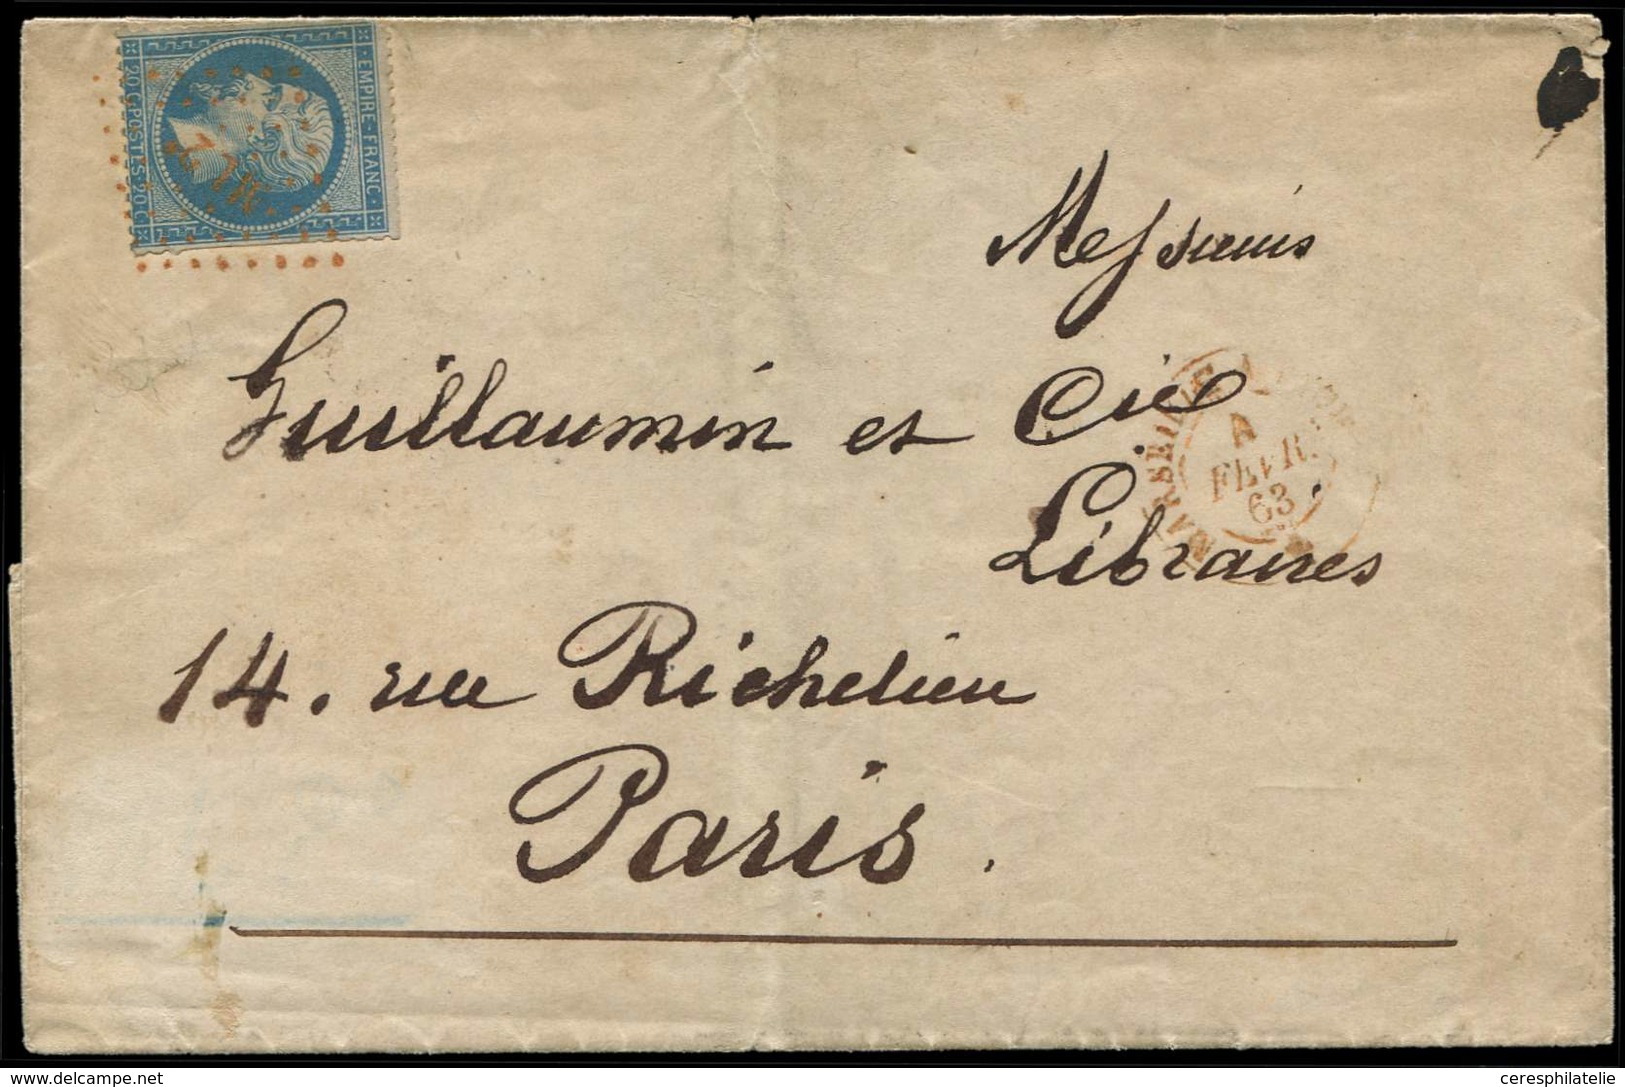 EMPIRE FRANC
20 C POSTES 20 C
Messieurs
Guillaumin et Cie
Libraires
14. rue Richelieu
Paris.
MARSEILLE
A
FEVR.
63
© delcampe.net
ceresphilatelie